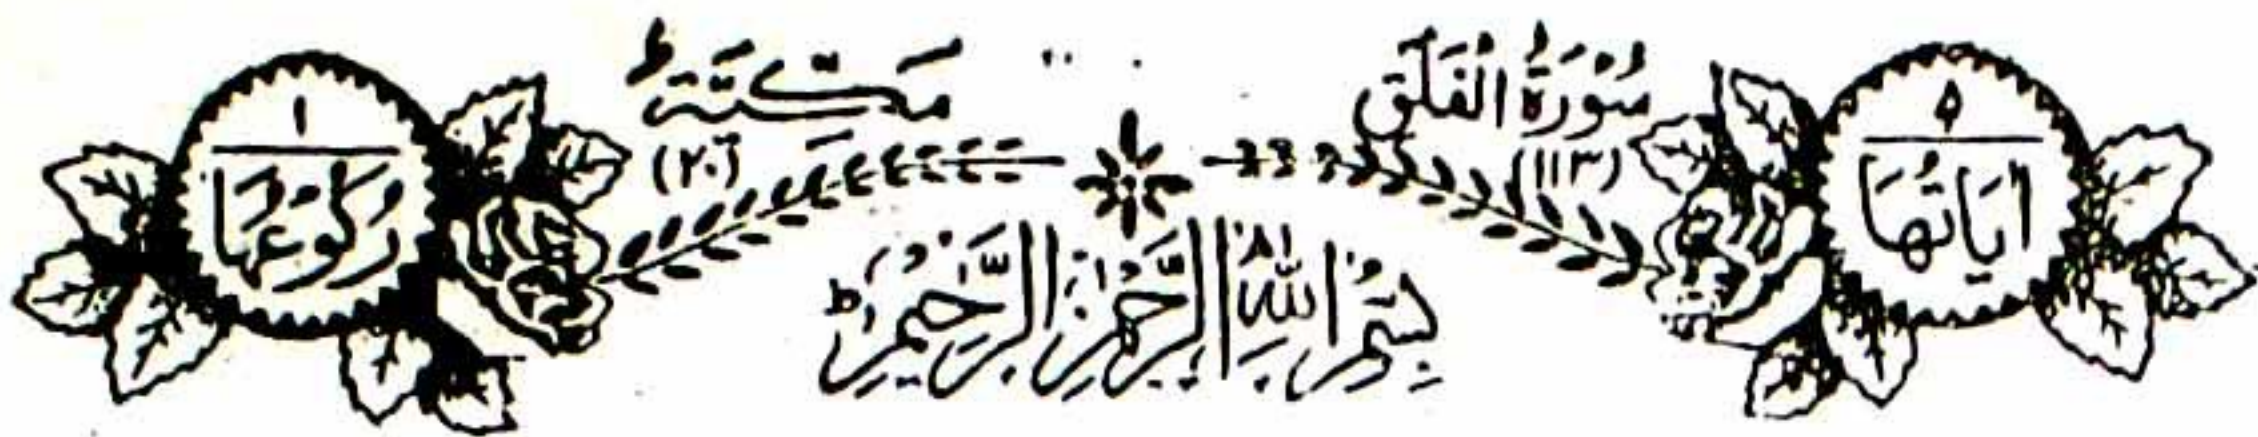 ۵
اٰيَاتُهَا
سُوْرَةُ الْفَلَقِ
(۱۱۳)
مَكِّيَّةٌ
(۲۰)
۱
رُكُوْعُهَا
بِسْمِ اللّٰهِ الرَّحْمٰنِ الرَّحِيْمِ ط